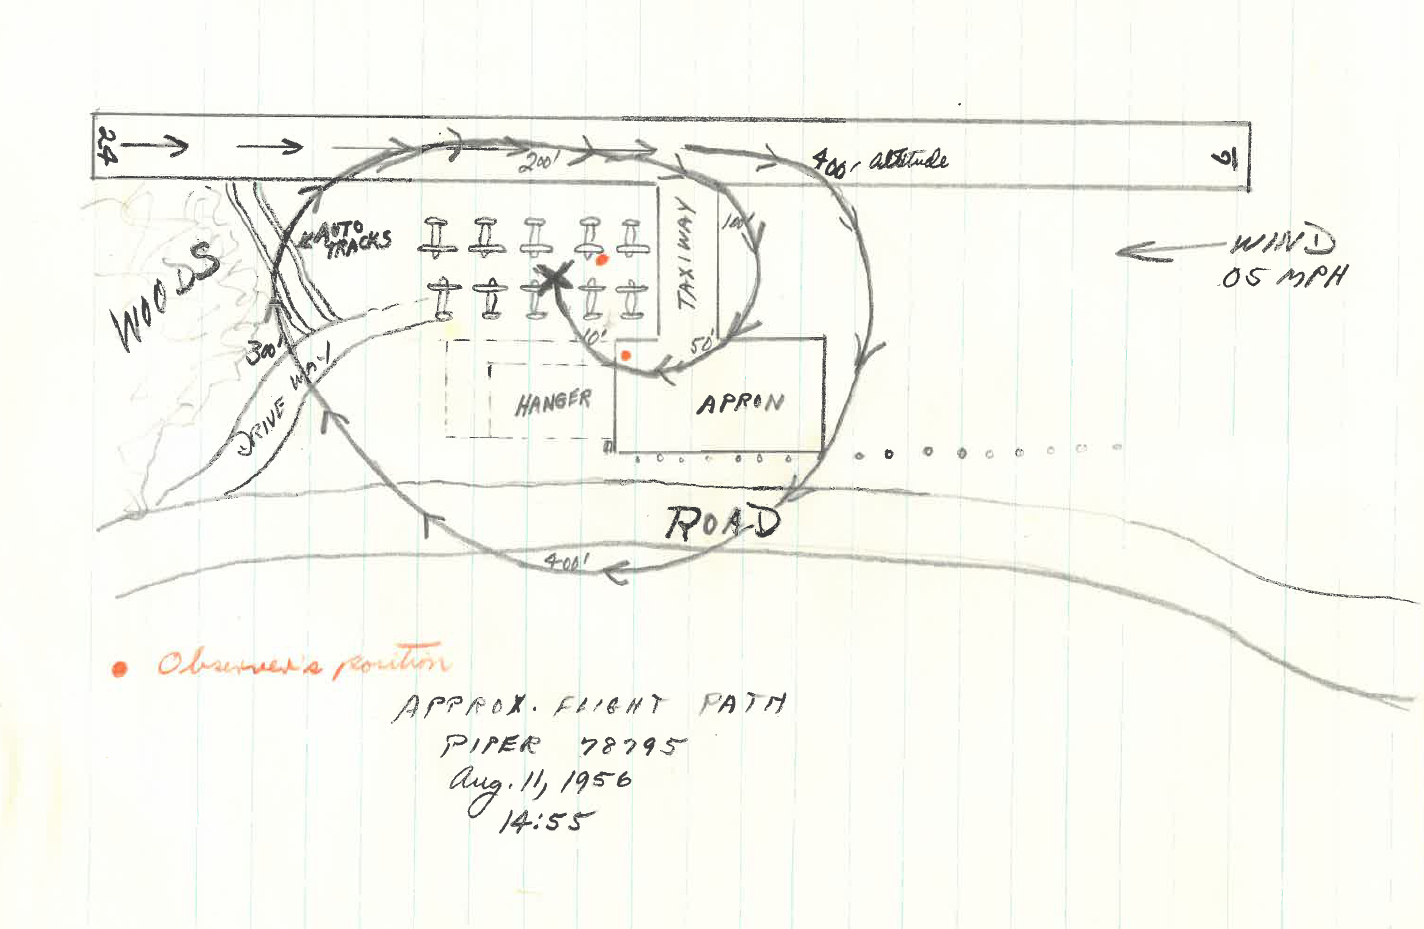 24
200'
400' altitude
6
WOODS
AUTO
TRACKS
TAXIWAY
100'
WIND
05 MPH
300'
DRIVE WAY
10'
50'
HANGER
APRON
ROAD
400'
Observer's position
APPROX. FLIGHT PATH
PIPER 78795
Aug. 11, 1956
14:55